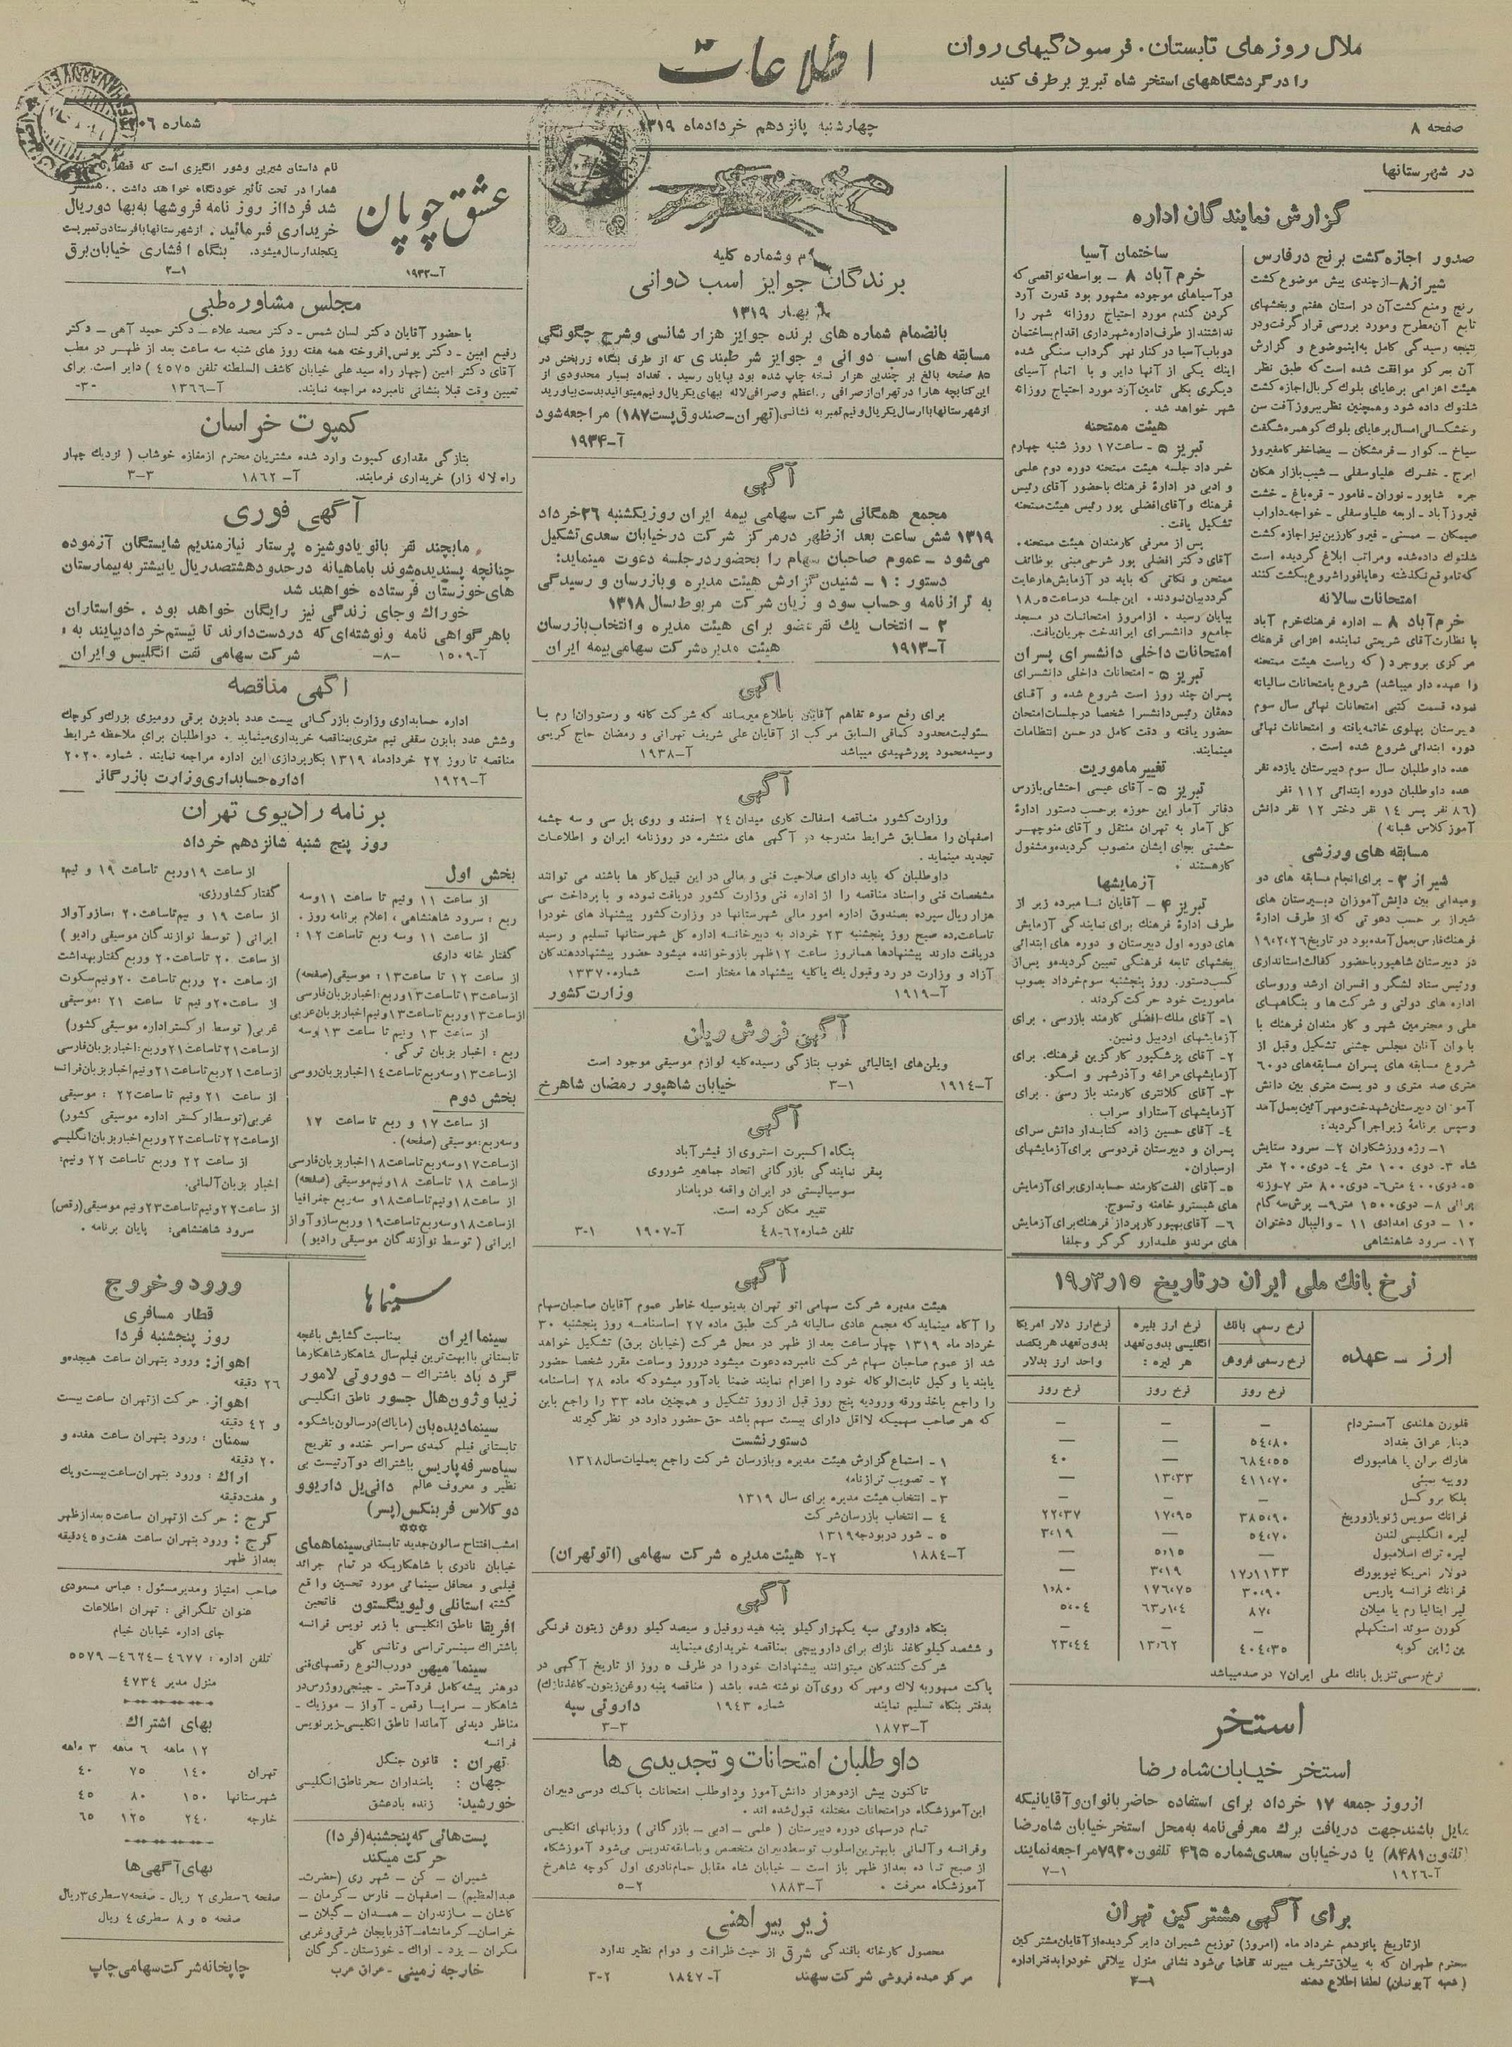 ملال روزهای تابستان، فرسودگیهای روان
را در گردشگاههای استخر شاه تبریز برطرف کنید
اطلاعات
صفحه ۸
چهارشنبه پانزدهم خردادماه ۱۳۱۹
شماره
در شهرستانها
گزارش نمایندگان اداره
صدور اجازه کشت برنج در فارس
شیراز ۸- از چندی پیش موضوع کشت
برنج و منع کشت آن در استان هفتم و بخشهای
تابع آن مطرح و مورد بررسی قرار گرفت و در
نتیجه رسیدگی کامل به اینموضوع و گزارش
آن بمرکز موافقت شده است که طبق نظر
هیئت اعزامی برعایای بلوک کربال اجازه کشت
شلتوک داده شود و همچنین نظر ببروز آفت سن
و خشکسالی امسال برعایای بلوک کوهمره شگفت
شلتوک داده شده و مراتب ابلاغ گردیده است
که تا موقع نگذشته رعایا فورا شروع بکشت کنند
امتحانات سالانه
خرم آباد ۸ - اداره فرهنگ خرم آباد
با نظارت آقای شریعتی نماینده اعزامی فرهنگ
مرکزی بروجرد ( که ریاست هیئت ممتحنه
را عهده دار میباشد) شروع بامتحانات سالیانه
نموده قسمت کتبی امتحانات نهائی سال سوم
دبیرستان پهلوی خاتمه یافته و امتحانات نهائی
دوره ابتدائی شروع شده است .
عده داوطلبان سال سوم دبیرستان یازده نفر
عده داوطلبان دوره ابتدائی ۱۱۲ نفر
(۸۶ نفر پسر ۱۴ نفر دختر ۱۲ نفر دانش
آموز کلاس شبانه )
مسابقه های ورزشی
شیراز ۳- برای انجام مسابقه های دو
و میدانی بین دانش آموزان دبیرستان های
شیراز بر حسب دعوتی که از طرف ادارهٔ
فرهنگ فارس بعمل آمده بود در تاریخ ۱۹،۲،۲۶
در دبیرستان شاهپور با حضور کفالت استانداری
و رئیس ستاد لشگر و افسران ارشد و روسای
اداره های دولتی و شرکت ها و بنگاههای
ملی و محترمین شهر و کارمندان فرهنگ با
بانوان آنان مجلس جشنی تشکیل و قبل از
شروع مسابقه های پسران مسابقه های دو ۶۰
متری صد متری و دویست متری بین دانش
آموزان دبیرستان شهدخت و مهر آئین بعمل آمد
و سپس برنامهٔ زیر اجرا گردید:
۱- رژه ورزشکاران ۲- سرود ستایش
شاه ۳- دوی ۱۰۰ متر ۴- دوی ۲۰۰ متر
۵- دوی ۴۰۰ متر ۶- دوی ۸۰۰ متر ۷- وزنه
پرانی ۸- دوی ۱۵۰۰ متر ۹- پرش سه گام
۱۰ - دوی امدادی ۱۱ - والیبال دختران
۱۲- سرود شاهنشاهی
ساختمان آسیا
خرم آباد ۸ - بواسطه نواقصی که
در آسیاهای موجوده مشهور بود قدرت آرد
کردن گندم مورد احتیاج روزانه شهر را
نداشتند از طرف اداره شهرداری اقدام بساختمان
دو باب آسیا در کنار نهر گرداب سنگی شده
اینک یکی از آنها دایر و با اتمام آسیای
دیگری بکلی تامین آرد مورد احتیاج روزانه
شهر خواهد شد .
هیئت ممتحنه
تبریز ۵ - ساعت ۱۷ روز شنبه چهارم
خرداد جلسه هیئت ممتحنه دوره دوم علمی
و ادبی در ادارهٔ فرهنگ باحضور آقای رئیس
فرهنگ و آقای افضلی پور رئیس هیئت ممتحنه
تشکیل یافت .
پس از معرفی کارمندان هیئت ممتحنه ،
آقای دکتر افضلی پور شرحی مبنی بوظائف
ممتحن و نکاتی که باید در آزمایش ها رعایت
گردد بیان نمودند . این جلسه در ساعت ۱۸٫۵
بپایان رسید . از امروز امتحانات در مسجد
جامع و دانشسرای ایراندخت جریان یافت .
امتحانات داخلی دانشسرای پسران
تبریز ۵ - امتحانات داخلی دانشسرای
پسران چند روز است شروع شده و آقای
دهقان رئیس دانشسرا شخصا در جلسات امتحان
حضور یافته و دقت کامل در حسن انتظامات
مینمایند.
تغییر ماموریت
تبریز ۵ - آقای عیسی احتشامی بازرس
دفاتر آمار این حوزه برحسب دستور ادارهٔ
کل آمار به تهران منتقل و آقای منوچهر
حشمتی بجای ایشان منصوب گردیده و مشغول
کار هستند .
آزمایشها
تبریز ۴ - آقایان نامبرده زیر از
طرف ادارهٔ فرهنگ برای نمایندگی آزمایش
های دوره اول دبیرستان و دوره های ابتدائی
بخشهای تابعه فرهنگی تعیین گردیده و پس از
کسب دستور، روز پنجشنبه سوم خرداد بصوب
ماموریت خود حرکت کردند .
۱- آقای ملک-افضلی کارمند بازرسی . برای
آزمایشهای اردبیل و نمین.
۲- آقای پزشکپور کارگزین فرهنگ، برای
آزمایشهای مراغه و آذرشهر و اسکو.
۳- آقای کلانتری کارمند بازرسی . برای
آزمایشهای آستارا و سراب .
۴- آقای حسین زاده کتابدار دانش سرای
پسران و دبیرستان فردوسی برای آزمایشهای
ارسباران.
۵- آقای الفت کارمند حسابداری برای آزمایش
های شبسترو خامنه و تسوج.
۶- آقای بهپور کارپرداز فرهنگ برای آزمایش
های مرند و علمدار و گرگر و جلفا
نرخ بانک ملی ایران در تاریخ ۱۹٫۳٫۱۵
ارز ـ عهده
نرخ رسمی بانک
نرخ رسمی فروش
نرخ روز
نرخ ارز بلیره انگلیسی بدون تعهد هر لیره :
نرخ روز
نرخ ارز دلار امریکا بدون تعهد هر یکصد واحد ارز بدلار
نرخ روز
فلورن هلندی آمستردام — — —
دینار عراق بغداد ۵۴،۸۰ — —
مارک بران یا هامبورک ۶۸۴،۵۵ — ۴۰
روپیه بمبئی ۴۱۱،۷۰ ۱۳،۳۳ —
بلکا بروکسل — — —
فرانک سویس ژنو یا زوریخ ۳۸۵،۹۰ ۱۷،۹۵ ۲۲،۳۷
لیره انگلیسی لندن ۵۴،۷۰ — ۳،۱۹
لیره ترک اسلامبول — ۵،۱۵ —
دولار امریکا نیویورک ۱۷٫۱۱۳۳ ۳،۱۹ —
فرانک فرانسه پاریس ۳۰،۹۰ ۱۷۶،۷۵ ۱،۸۰
لیر ایتالیا رم یا میلان ۸۷، ۶۳٫۱۰۴ ۵،۰۴
کورن سوئد استکهلم — — —
ین ژاپن کوبه ۴۰۴،۳۵ ۱۳،۶۲ ۲۳،۴۴
نرخ رسمی تنزیل بانک ملی ایران ۷ درصد میباشد
استخر
استخر خیابان شاه رضا
از روز جمعه ۱۷ خرداد برای استفاده حاضر بانوان و آقایانیکه
مایل باشند جهت دریافت برگ معرفی نامه به محل استخر خیابان شاه رضا
(تلفون ۸۴۸۱) یا در خیابان سعدی شماره ۴۶۵ تلفون ۷۹۳۰ مراجعه نمایند
آ-۱۹۲۶ ۱-۷
برای آگهی مشترکین تهران
از تاریخ پانزدهم خرداد ماه (امروز) توزیع شمیران دایر گردیده از آقایان مشترکین
محترم طهران که به ییلاق تشریف میبرند تقاضا می‌شود نشانی منزل ییلاقی خود را بدفتر اداره
( شعبه آبونمان) لطفا اطلاع دهند ۱-۴
و شماره کلیه
برندگان جوایز اسب دوانی
بهار ۱۳۱۹
بانضمام شماره های برنده جوایز هزار شانسی و شرح چگونگی
مسابقه های اسب دوانی و جوایز شرطبندی که از طرف بنگاه زربخش در
۸۵ صفحه بالغ بر چندین هزار نسخه چاپ شده بود بپایان رسید . تعداد بسیار محدودی از
این کتابچه ها را در تهران از صرافی راه اعظم و صرافی لاله ببهای یکریال و نیم میتوانید بدست بیاورید
از شهرستانها با ارسال یکریال و نیم تمبر به نشانی (تهران-صندوق پست ۱۸۷) مراجعه شود
آ-۱۹۳۴
آگهی
مجمع همگانی شرکت سهامی بیمه ایران روز یکشنبه ۲۶ خرداد
۱۳۱۹ شش ساعت بعد از ظهر در مرکز شرکت در خیابان سعدی تشکیل
می‌شود ـ عموم صاحبان سهام را بحضور در جلسه دعوت مینماید:
دستور : ۱ - شنیدن گزارش هیئت مدیره و بازرسان و رسیدگی
به ترازنامه و حساب سود و زیان شرکت مربوط بسال ۱۳۱۸
۲ - انتخاب یک نفر عضو برای هیئت مدیره و انتخاب بازرسان
آ-۱۹۱۳ هیئت مدیره شرکت سهامی بیمه ایران
آگهی
برای رفع سوء تفاهم آقایان باطلاع میرساند که شرکت کافه و رستوران رم با
مسئولیت محدود کمافی السابق مرکب از آقایان علی شریف تهرانی و رمضان حاج کریمی
و سید محمود پورشهیدی میباشد آ-۱۹۳۸
آگهی
وزارت کشور مناقصه اسفالت کاری میدان ۲۴ اسفند و روی پل سی و سه چشمه
اصفهان را مطابق شرایط مندرجه در آگهی های منتشره در روزنامه ایران و اطلاعات
تجدید مینماید .
داوطلبان که باید دارای صلاحیت فنی و مالی در این قبیل کار ها باشند می توانند
مشخصات فنی و اسناد مناقصه را از اداره فنی وزارت کشور دریافت نموده و با پرداخت سی
هزار ریال سپرده بصندوق اداره امور مالی شهرستانها در وزارت کشور پیشنهاد های خود را
تا ساعت ده صبح روز پنجشنبه ۲۳ خرداد به دبیرخانه اداره کل شهرستانها تسلیم و رسید
دریافت دارند پیشنهادها همانروز ساعت ۱۲ ظهر باز و خوانده میشود حضور پیشنهاد دهندگان
آزاد و وزارت در رد و قبول یک یا کلیه پیشنهاد ها مختار است شماره ۱۳۳۷۰
آ-۱۹۱۹ وزارت کشور
آگهی فروش ویلن
ویلن‌های ایتالیائی خوب بتازگی رسیده کلیه لوازم موسیقی موجود است
آ-۱۹۱۴ ۱-۳ خیابان شاهپور رمضان شاهرخ
آگهی
بنگاه اکسپرت استروی از فیشرآباد
بمقر نمایندگی بازرگانی اتحاد جماهیر شوروی
سوسیالیستی در ایران واقعه در پامنار
تغییر مکان کرده است.
تلفن شماره ۶۲-۴۸ آ-۱۹۰۷ ۱-۳
آگهی
هیئت مدیره شرکت سهامی اتو تهران بدینوسیله خاطر عموم آقایان صاحبان سهام
را آگاه مینماید که مجمع عادی سالیانه شرکت طبق ماده ۲۷ اساسنامه روز پنجشنبه ۳۰
خرداد ماه ۱۳۱۹ چهار ساعت بعد از ظهر در محل شرکت (خیابان برق) تشکیل خواهد
شد از عموم صاحبان سهام شرکت نامبرده دعوت میشود در روز و ساعت مقرر شخصا حضور
یابند یا وکیل ثابت الوکاله خود را اعزام نمایند ضمنا یادآور میشود که ماده ۲۸ اساسنامه
را راجع باخذ ورقه ورودیه پنج روز قبل از روز تشکیل و همچنین ماده ۳۳ را راجع باین
که هر صاحب سهمیکه لااقل دارای بیست سهم باشد حق حضور دارد در نظر گیرند
دستور نشست
۱- استماع گزارش هیئت مدیره و بازرسان شرکت راجع بعملیات سال ۱۳۱۸
۲ - تصویب ترازنامه
۳ - انتخاب هیئت مدیره برای سال ۱۳۱۹
۴ - انتخاب بازرسان شرکت
۵ - شور در بودجه ۱۳۱۹
آ-۱۸۸۴ ۲-۲ هیئت مدیره شرکت سهامی (اتو تهران)
آگهی
بنگاه داروئی سپه یکهزار کیلو پنبه هیدروفیل و سیصد کیلو روغن زیتون فرنگی
و ششصد کیلو کاغذ نازک برای دارو پیچی بمناقصه خریداری مینماید
شرکت کنندگان میتوانند پیشنهادات خود را در ظرف ۵ روز از تاریخ آگهی در
پاکت ممهور به لاک و مهر که روی آن نوشته شده باشد ( مناقصه پنبه روغن زیتون-کاغذ نازک)
بدفتر بنگاه تسلیم نمایند شماره ۱۹۴۳ داروئی سپه
آ-۱۸۷۳ ۳-۳
داوطلبان امتحانات و تجدیدی ها
تاکنون بیش از دو هزار دانش آموز و داوطلب امتحانات با کمک درسی دبیران
این آموزشگاه در امتحانات مختلفه قبول شده اند .
تمام درسهای دوره دبیرستان ( علمی - ادبی - بازرگانی ) و زبانهای انگلیسی
و فرانسه و آلمانی با بهترین اسلوب توسط دبیران متخصص و باسابقه تدریس می‌شود آموزشگاه
از صبح تا ده بعد از ظهر باز است - خیابان شاه مقابل حمام نادری اول کوچه شاهرخ
آموزشگاه معرفت . آ-۱۸۸۳ ۲-۵
زیر پیراهنی
محصول کارخانه بافندگی شرق از حیث ظرافت و دوام نظیر ندارد
مرکز عمده فروشی شرکت سهند آ-۱۸۴۷ ۲-۳
عشق چوپان
نام داستان شیرین وشور انگیزی است که
شما را در تحت تأثیر خود نگاه خواهد داشت . منتشر
شد فردا از روزنامه فروشها به بها دو ریال
خریداری فرمائید . از شهرستانها با فرستادن تمبر پست
یکجلد ارسال میشود. بنگاه افشاری خیابان برق
آ-۱۹۳۲ ۱-۲
مجلس مشاوره طبی
با حضور آقایان دکتر لسان شمس - دکتر محمد علاء - دکتر حمید آهی - دکتر
رفیع امین - دکتر یونس افروخته همه هفته روز های شنبه سه ساعت بعد از ظهر در مطب
آقای دکتر امین (چهار راه سید علی خیابان کاشف السلطنه تلفن ۴۵۷۵) دایر است. برای
تعیین وقت قبلا بنشانی نامبرده مراجعه نمایند. آ-۱۳۶۶ ۳۰-
کمپوت خراسان
بتازگی مقداری کمپوت وارد شده مشتریان محترم از مغازه خوشاب ( نزدیک چهار
راه لاله زار) خریداری فرمایند. آ- ۱۸۶۲ ۳-۳
آگهی فوری
ما بچند نفر بانو یا دوشیزه پرستار نیازمندیم شایستگان آزموده
چنانچه پسندیده شوند با ماهیانه در حدود هشتصد ریال یا بیشتر به بیمارستان
های خوزستان فرستاده خواهند شد
خوراک و جای زندگی نیز رایگان خواهد بود . خواستاران
با هر گواهی نامه و نوشته‌ای که در دست دارند تا بیستم خرداد بیایند به :
آ-۱۵۰۹ -۸- شرکت سهامی نفت انگلیس و ایران
آگهی مناقصه
اداره حسابداری وزارت بازرگانی بیست عدد بادبزن برقی رومیزی بزرگ و کوچک
و شش عدد بادبزن سقفی نیم متری بمناقصه خریداری مینماید . داوطلبان برای ملاحظه شرایط
مناقصه تا روز ۲۲ خردادماه ۱۳۱۹ بکارپردازی این اداره مراجعه نمایند . شماره ۲۰۲۰
آ-۱۹۲۹ اداره حسابداری وزارت بازرگانی
برنامه رادیوی تهران
روز پنج شنبه شانزدهم خرداد
بخش اول
از ساعت ۱۱ ونیم تا ساعت ۱۱ وسه
ربع : سرود شاهنشاهی، اعلام برنامه روز .
از ساعت ۱۱ وسه ربع تا ساعت ۱۲ :
گفتار خانه داری
از ساعت ۱۲ تا ساعت ۱۳: موسیقی (صفحه)
از ساعت ۱۳ تا ساعت ۱۳ وربع : اخبار بزبان فارسی
از ساعت ۱۳ وربع تا ساعت ۱۳ ونیم اخبار بزبان عربی
از ساعت ۱۳ ونیم تا ساعت ۱۳ وسه
ربع : اخبار بزبان ترکی .
از ساعت ۱۳ وسه ربع تا ساعت ۱۴ اخبار بزبان روسی
بخش دوم
از ساعت ۱۷ و ربع تا ساعت ۱۷
وسه ربع : موسیقی (صفحه) .
از ساعت ۱۷ وسه ربع تا ساعت ۱۸ اخبار بزبان فارسی
از ساعت ۱۸ تا ساعت ۱۸ ونیم موسیقی (صفحه)
از ساعت ۱۸ ونیم تا ساعت ۱۸ و سه ربع جغرافیا
از ساعت ۱۸ وسه ربع تا ساعت ۱۹ وربع ساز و آواز
ایرانی ( توسط نوازندگان موسیقی رادیو )
از ساعت ۱۹ وربع تا ساعت ۱۹ و نیم:
گفتار کشاورزی.
از ساعت ۱۹ و نیم تا ساعت ۲۰: ساز و آواز
ایرانی ( توسط نوازندگان موسیقی رادیو )
از ساعت ۲۰ تا ساعت ۲۰ وربع گفتار بهداشت
از ساعت ۲۰ وربع تا ساعت ۲۰ ونیم سکوت
از ساعت ۲۰ ونیم تا ساعت ۲۱ : موسیقی
غربی ( توسط ارکستر اداره موسیقی کشور)
از ساعت ۲۱ تا ساعت ۲۱ وربع: اخبار بزبان فارسی
از ساعت ۲۱ وربع تا ساعت ۲۱ ونیم اخبار بزبان فرانسه
از ساعت ۲۱ ونیم تا ساعت ۲۲ : موسیقی
غربی (توسط ارکستر اداره موسیقی کشور)
از ساعت ۲۲ تا ساعت ۲۲ وربع اخبار بزبان انگلیسی
از ساعت ۲۲ وربع تا ساعت ۲۲ ونیم:
اخبار بزبان آلمانی.
از ساعت ۲۲ ونیم تا ساعت ۲۳ ونیم موسیقی (رقص)
سرود شاهنشاهی: پایان برنامه .
سینماها
سینما ایران بمناسبت گشایش باغچه
تابستانی با ابهت ترین فیلم سال شاهکار شاهکارها
گرد باد باشتراک - دوروتی لامور
زیبا و ژون هال جسور ناطق انگلیسی
سینما دیده بان (مایاک) در سالون باشکوه
تابستانی فیلم کمدی سراسر خنده و تفریح
سیاه سرفه پاریس باشتراک دو آرتیست بی
نظیر و معروف عالم دانی یل داریوو
دوکلاس فربنکس (پسر)
***
امشب افتتاح سالون جدید تابستانی سینما همای
خیابان نادری با شاهکاریکه در تمام جرائد
فیلمی و محافل سینمائی مورد تحسین واقع
گشته استانلی و لیوینگستون فاتحین
افریقا ناطق انگلیسی با زیر نویس فرانسه
باشتراک سپنسر تراسی و نانسی کلی
سینما میهن دورب النوع رقصهای فنی
دو هنر پیشه کامل فرد آستر - جینجی روژرس در
شاهکار - سراپا رقص - آواز - موزیک -
مناظر دیدنی آماندا ناطق انگلیسی-زیرنویس
فرانسه
تهران : قانون جنگل
جهان : پاسداران سحر ناطق انگلیسی
خورشید : زنده باد عشق
پست هائی که پنجشنبه (فردا)
حرکت میکند
شمیران - کن - شهر ری (حضرت
عبدالعظیم) - اصفهان - فارس - کرمان -
کاشان - مازندران - همدان - گیلان -
خراسان - کرمانشاه - آذربایجان شرقی و غربی
مکران - یزد - اراک - خوزستان - گرگان
خارجه زمینی - عراق عرب
ورود و خروج
قطار مسافری
روز پنجشنبه فردا
اهواز: ورود بتهران ساعت هیجده و
۲۶ دقیقه
اهواز: حرکت از تهران ساعت بیست
و ۴۲ دقیقه
سمنان: ورود بتهران ساعت هفده و
۲۰ دقیقه
اراک : ورود بتهران ساعت بیست و یک
و هفت دقیقه
کرج : حرکت از تهران ساعت ۵ بعد از ظهر
کرج : ورود بتهران ساعت هفت و ۴۵ دقیقه
بعد از ظهر
صاحب امتیاز و مدیر مسئول : عباس مسعودی
عنوان تلگرافی : تهران اطلاعات
جای اداره خیابان خیام
تلفن اداره : ۴۶۷۷-۴۶۲۴-۵۵۷۹
منزل مدیر ۴۷۳۴
بهای اشتراک
۱۲ ماهه ۶ ماهه ۳ ماهه
تهران ۱۴۰ ۷۵ ۴۰
شهرستانها ۱۵۰ ۸۰ ۴۵
خارجه ۲۴۰ ۱۲۵ ۶۵
بهای آگهی‌ها
صفحه ۶ سطری ۲ ریال - صفحه ۷ سطری ۳ ریال
صفحه ۵ و ۸ سطری ۴ ریال
چاپخانه شرکت سهامی چاپ